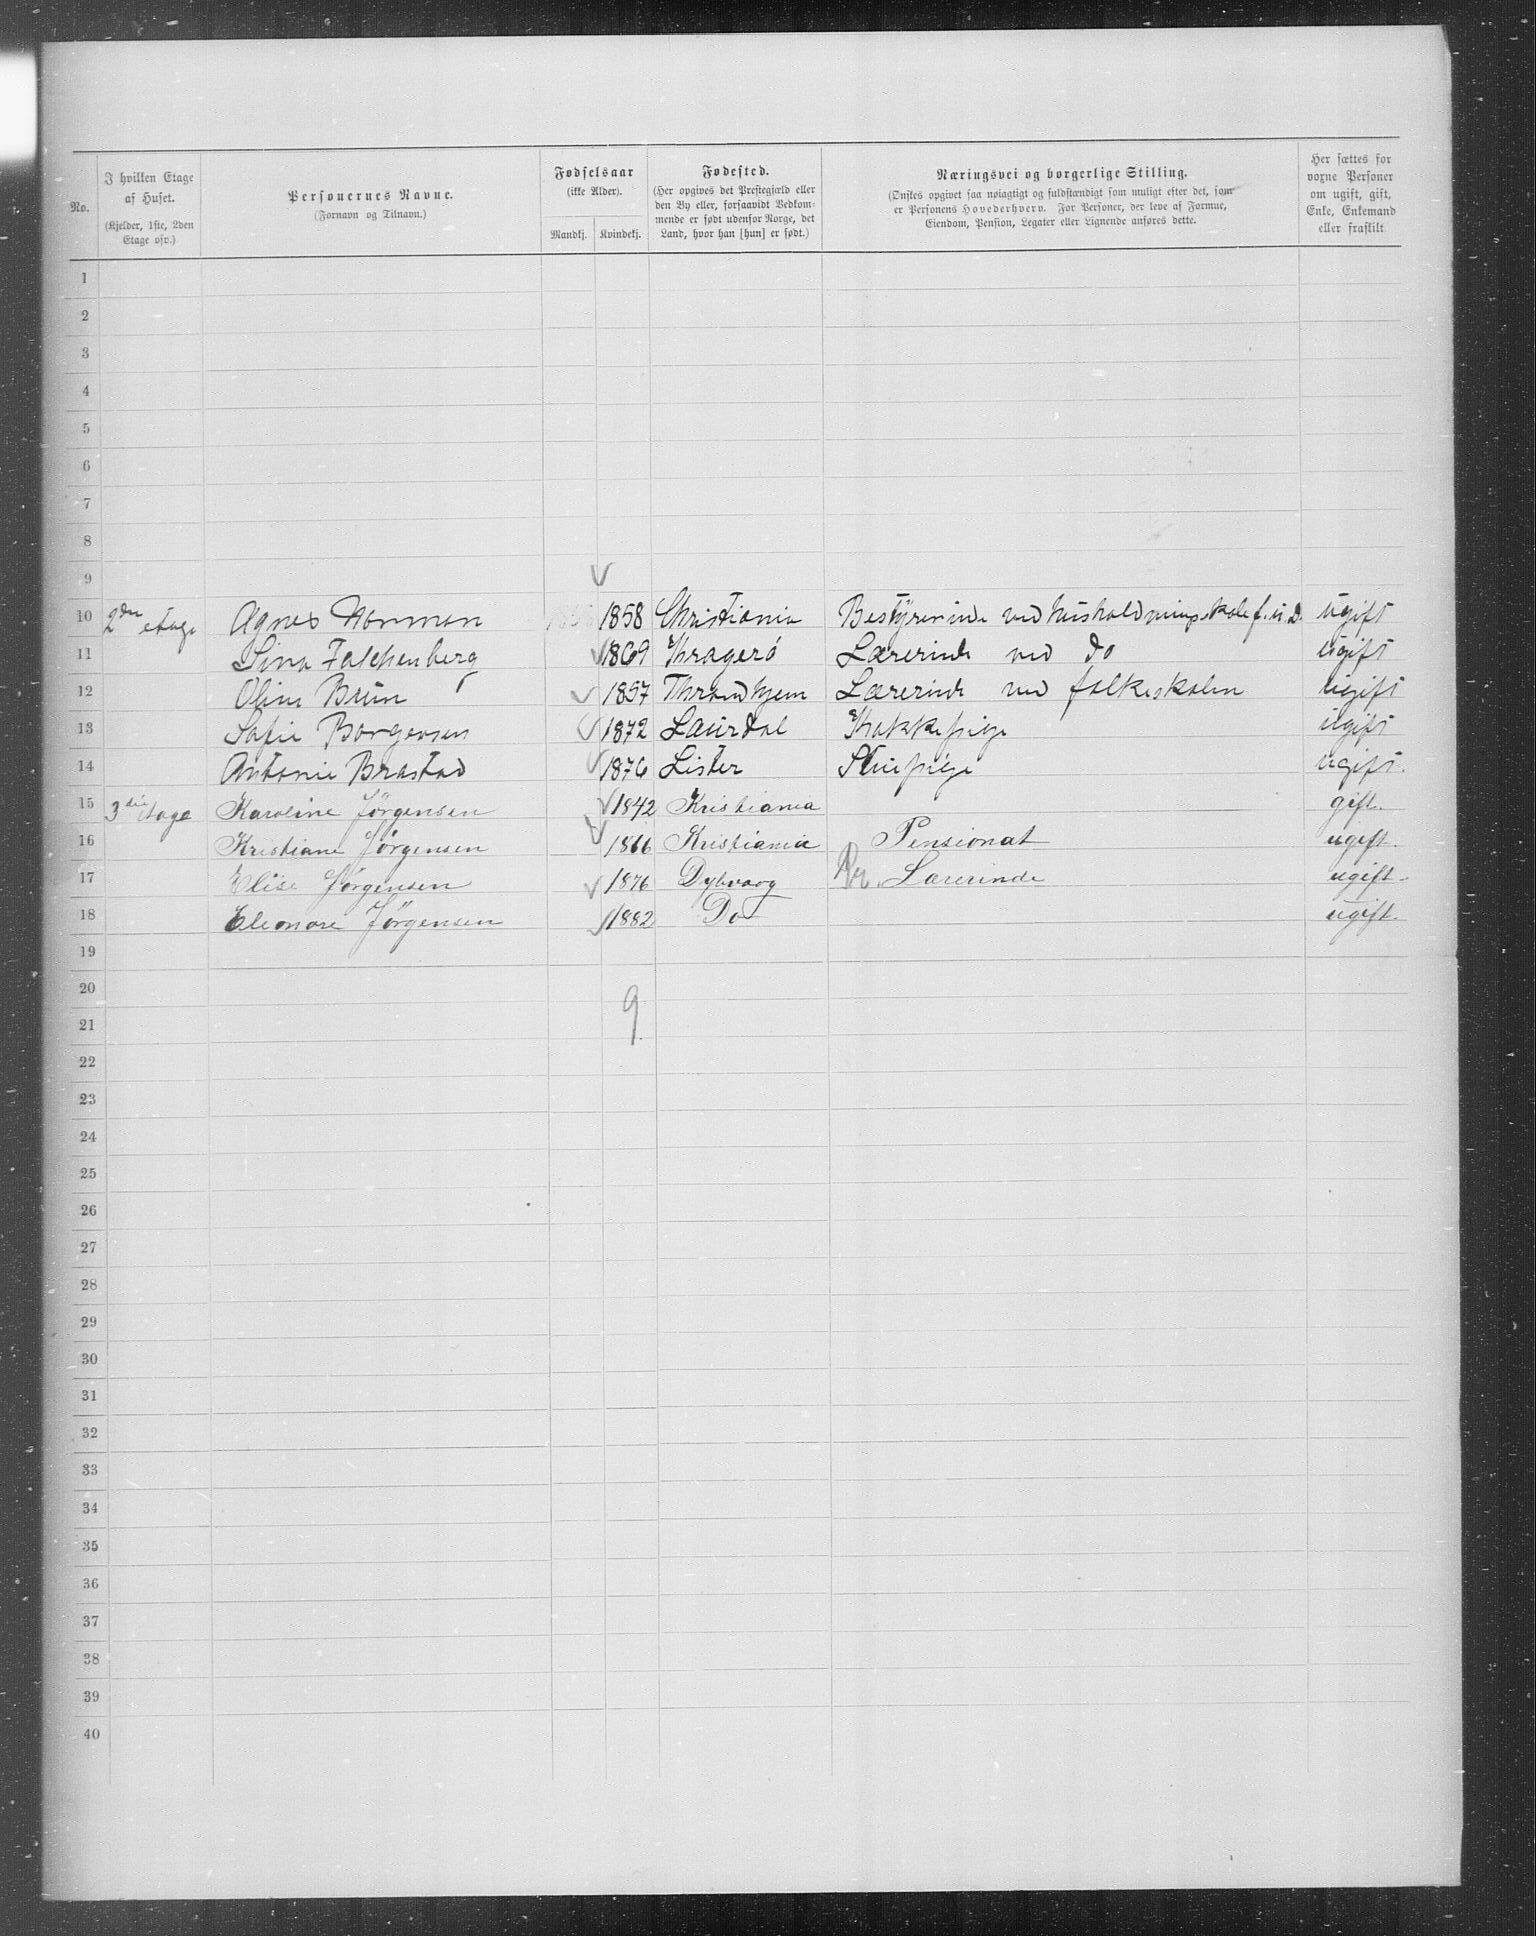 No.
I hvilken Etage af Huset. (Kjelder, 1ste, 2den Etage osv.)
Personernes Navne. (Fornavn og Tilnavn.)
Fødselsaar (ikke Alder).
Mandkj. Kvindekj.
Fødested. (Her opgives det Prestegjæld eller den By eller, forsaavidt Vedkommende er født udenfor Norge, det Land, hvor han [hun] er født.)
Næringsvei og borgerlige Stilling. (Ønskes opgivet saa nøiagtigt og fuldstændigt som muligt efter det, som er Personens Hovederhverv. For Personer, der leve af Formue, Eiendom, Pension, Legater eller Lignende anføres dette.
Her sættes for voxne Personer om ugift, gift, Enke, Enkemand eller fraskilt
1
2
3
4
5
6
7
8
9
10 2den etage Agnes Norman 1858 Christiania Bestyrerinde ved husholdningsskole f. u. D. ugift
11 Sina Falchenberg 1869 Kragerö Lærerinde ved do ugift
12 Oline Brun 1857 Throndhjem Lærerinde ved folkeskolen ugift
13 Sofie Borgersen 1872 Laurdal Kokkepige ugift
14 Antonie Brastad 1876 Lister Stuepige ugift.
15 3die Etage Karoline Jörgensen 1842 Kristiania gift.
16 Kristiane Jörgensen 1866 Kristiania Pensionat ugift.
17 Elise Jörgensen 1876 Dybvaag Lærerinde ugift.
18 Eleonore Jörgensen 1882 Do ugift.
19
20
9
21
22
23
24
25
26
27
28
29
30
31
32
33
34
35
36
37
38
39
40